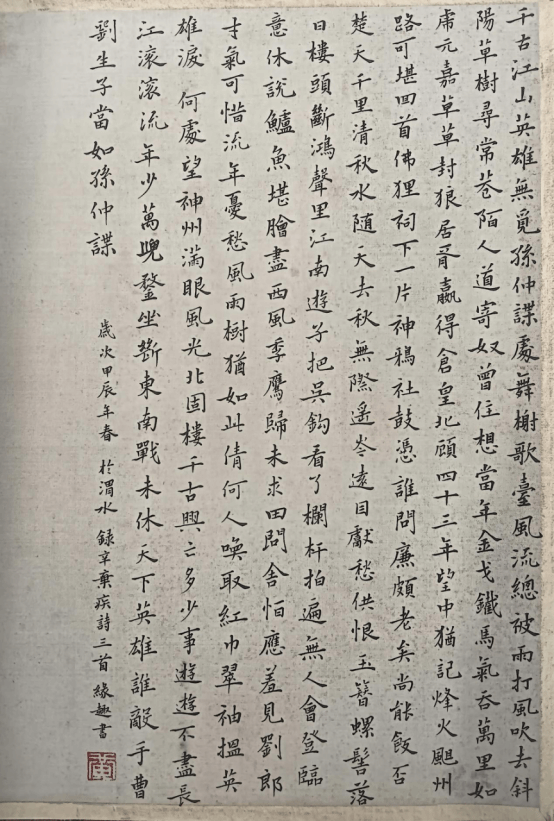 千古江山英雄無覓孫仲謀處舞榭歌臺風流總被雨打風吹去斜
陽草樹尋常巷陌人道寄奴曾住想當年金戈鐵馬氣吞萬里如
虎元嘉草草封狼居胥贏得倉皇北顧四十三年望中猶記烽火颺州
路可堪回首佛狸祠下一片神鴉社鼓憑誰問廉頗老矣尚能飯否
楚天千里清秋水随天去秋無際遥岑遠目獻愁供恨玉簪螺髻落
日樓頭斷鴻聲里江南遊子把吳鈎看了欄杆拍遍無人會登臨
意休說鱸魚堪膾盡西風季鷹歸未求田問舍怕應羞見劉郎
才氣可惜流年憂愁風雨樹猶如此倩何人喚取紅巾翠袖搵英
雄淚何處望神州滿眼風光北固樓千古興亡多少事遊遊不盡長
江滾滾流年少萬兜鍪坐斷東南戰未休天下英雄誰敵手曹
劉生子當如孫仲謀
歲次甲辰年春於渭水錄辛棄疾詩三首緣趣書
黄